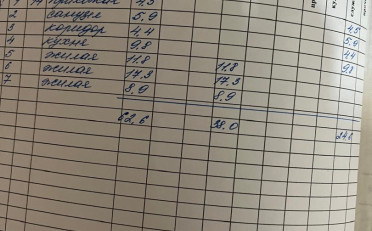 1 прихожая 4,5 4,5
2 санузел 5,9 5,9
3 коридор 4,4 4,4
4 кухня 9,8 9,8
5 жилая 11,8 11,8
6 жилая 17,3 17,3
7 жилая 8,9 8,9
62,6 38,0 24,6